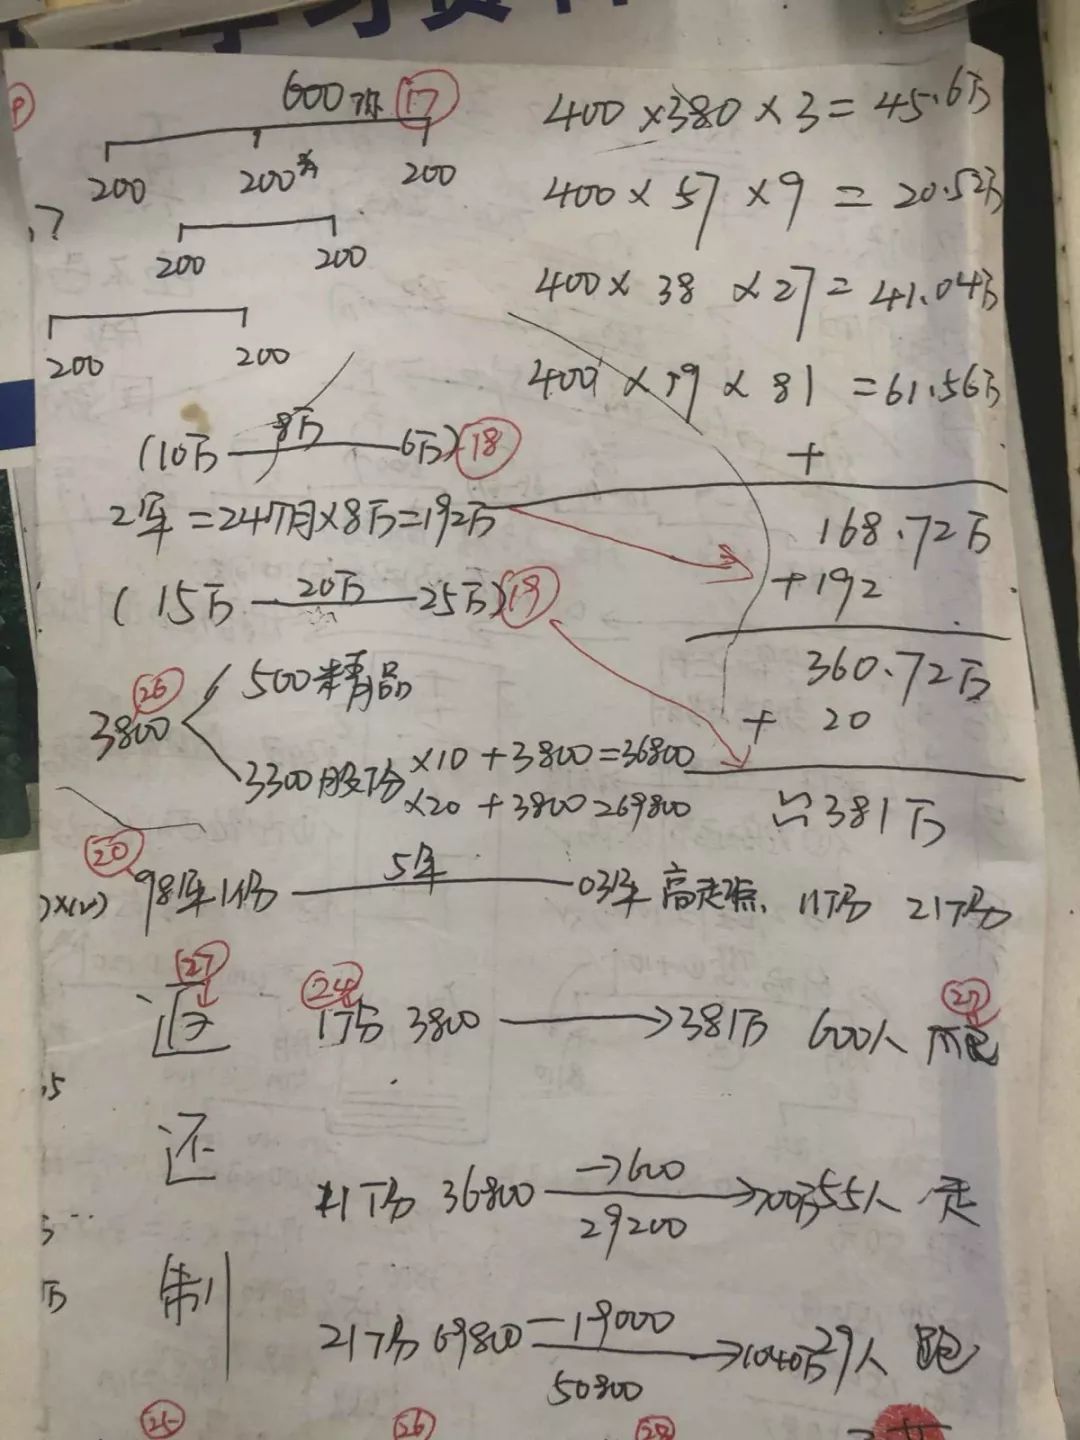 学习资料
600份 17
200 200 200
200 200
200 200
400×380×3=45.6万
400×57×9=20.52万
400×38×27=41.04万
400×19×81=61.56万
+
168.72万
+192
360.72万
+20
≌381万
(10万 8万 6万) 18
2年=24个月×8万=192万
(15万 20万 25万) 19
26
3800 500精品
3300股份 ×10+3800=36800
×20+3800=69800
20
98年1份 5年 03年 11份 21份
27 24 27
退 1份 3800 → 381万 600人
还 11份 36800 →600 29200 55人 走
制 21份 69800 —19000 50800 1040万 29人 跑
25 26 28